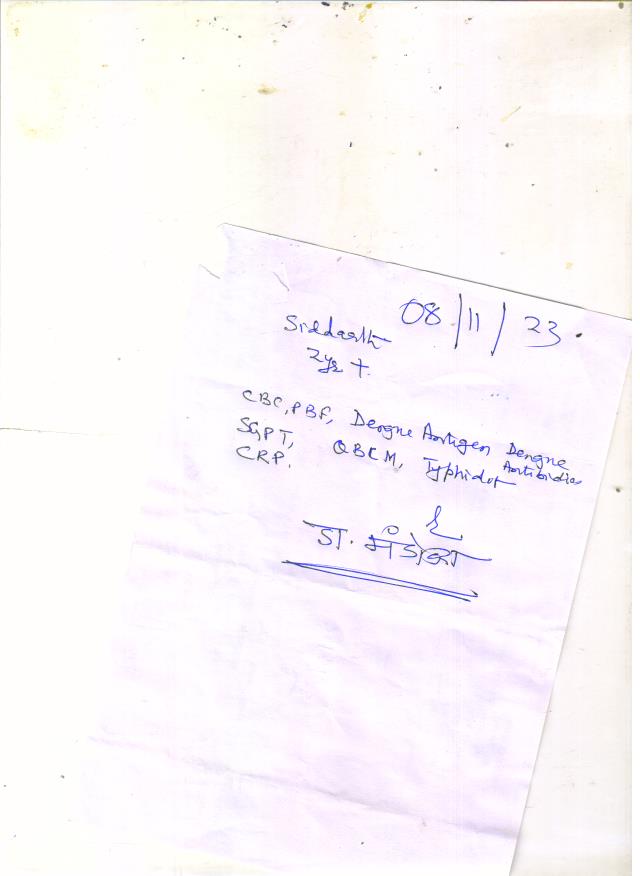 08/11/23
Siddarth
2yr +
CBC, PBF, Dengue Antigen Dengue Antibodies
SGPT, QBCM, Typhidot
CRP.
डा. मंडोवरा